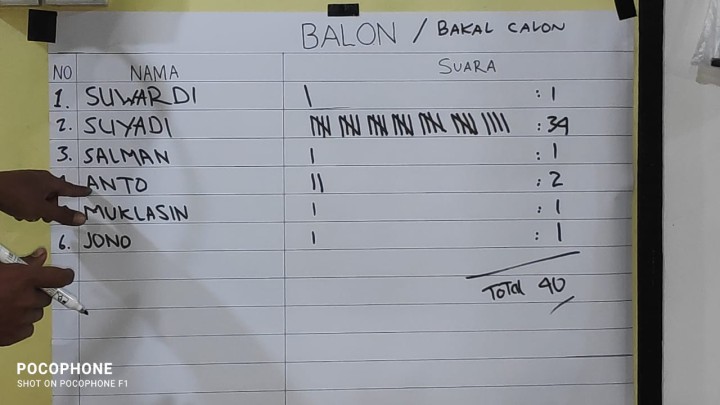 BALON / BAKAL CALON
NO NAMA SUARA
1. SUWARDI : 1
2. SUYADI : 34
3. SALMAN : 1
ANTO : 2
MUKLASIN : 1
6. JONO : 1
TOTAL 40
POCOPHONE
SHOT ON POCOPHONE F1